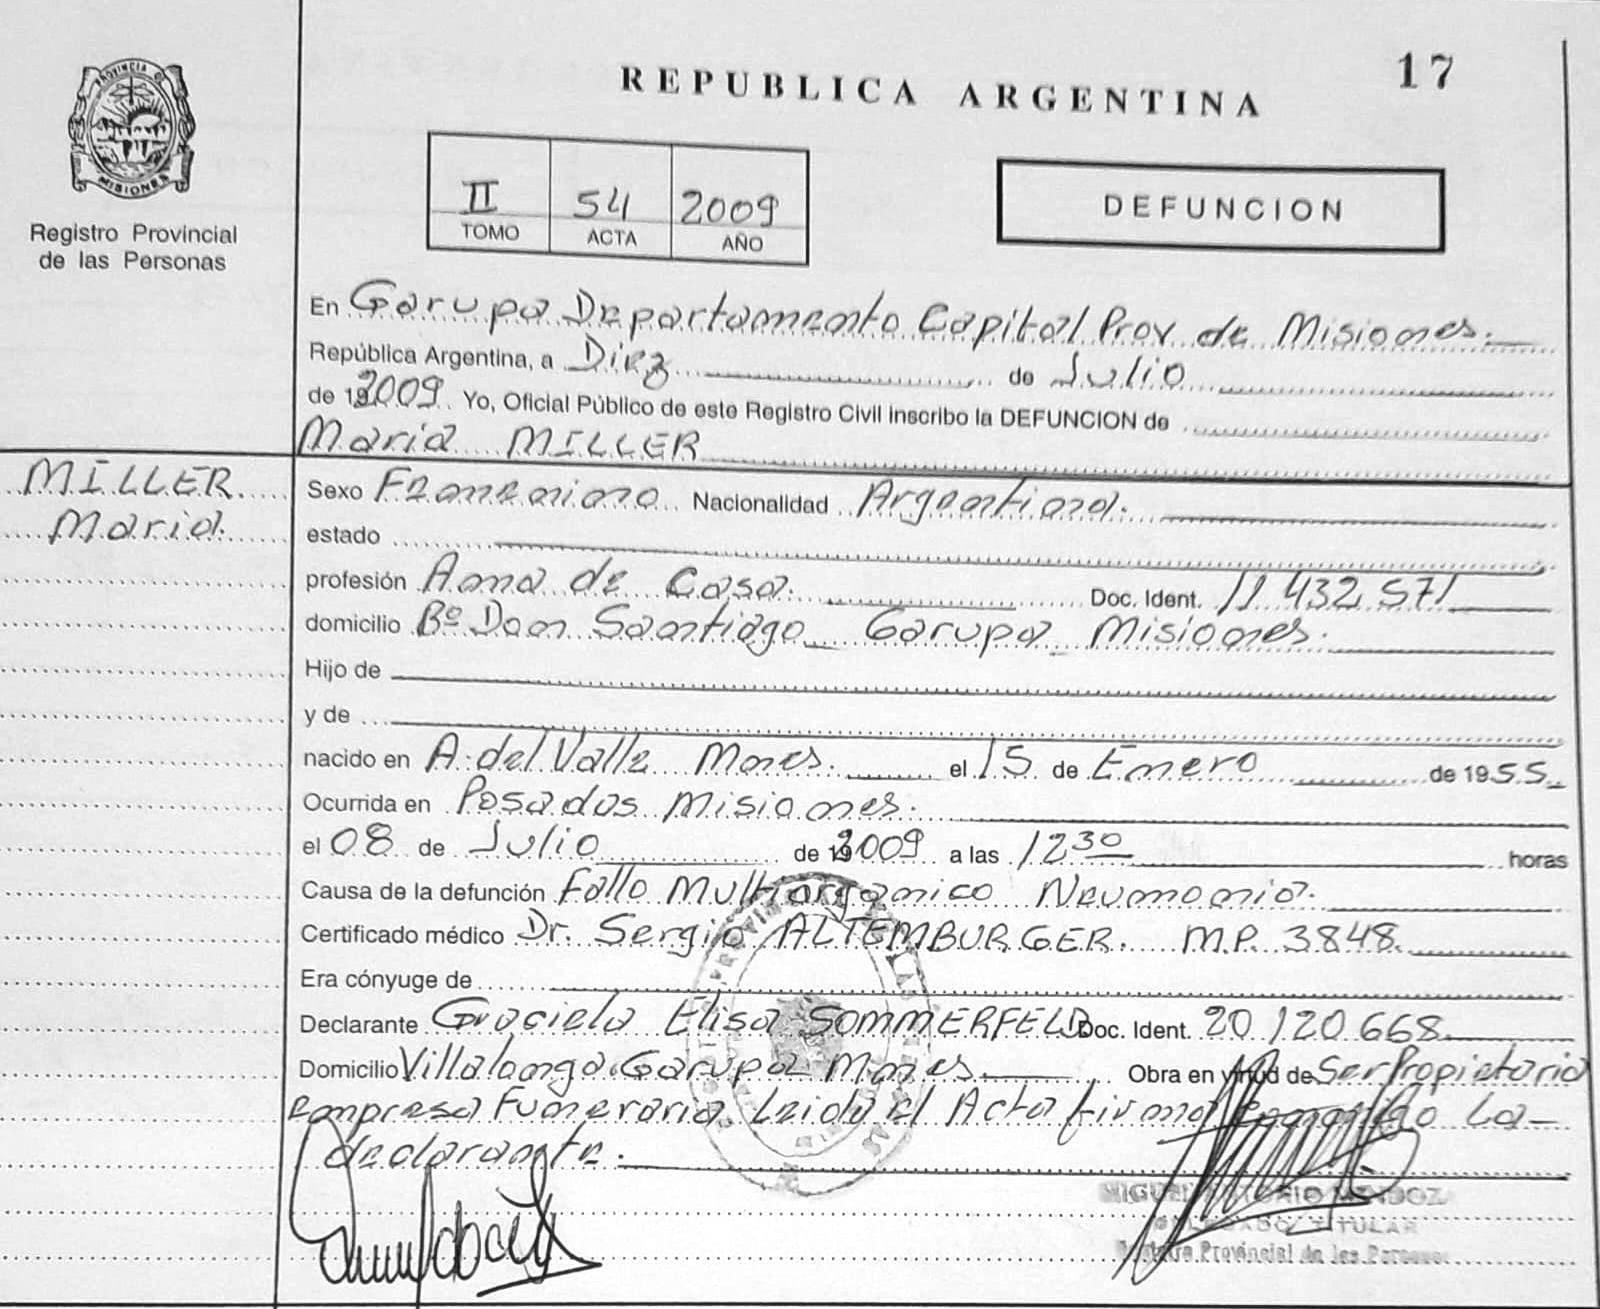 17
REPUBLICA ARGENTINA
PROVINCIA DE
MISIONES
Registro Provincial
de las Personas
II 54 2009
TOMO ACTA AÑO
DEFUNCION
En Garupa Departamento Capital Prov de Misiones.
República Argentina, a Diez de Julio
de 2009 Yo, Oficial Público de este Registro Civil inscribo la DEFUNCION de
Maria MILLER
MILLER
Maria.
Sexo Femenino Nacionalidad Argentina.
estado
profesión Ama de Casa. Doc. Ident. 11.432.571
domicilio Bº Don Santiago Garupa Misiones.
Hijo de
y de
nacido en A. del Valle Mnes. el 15 de Enero de 1955
Ocurrida en Posadas Misiones.
el 08 de Julio de 2009 a las 12 30 horas
Causa de la defunción Fallo Multiorganico Neumonia.
Certificado médico Dr. Sergio ALTEMBURGER. M.P. 3848.
Era cónyuge de
Declarante Graciela Elisa SOMMERFELD Doc. Ident. 20.120.668
Domicilio Villalonga Garupa Mnes Obra en virtud de Ser Propietaria
Empresa Funeraria Leida El Acta firma Conmigo La
declarante.
DELEGADO TITULAR
Provincial de las Personas